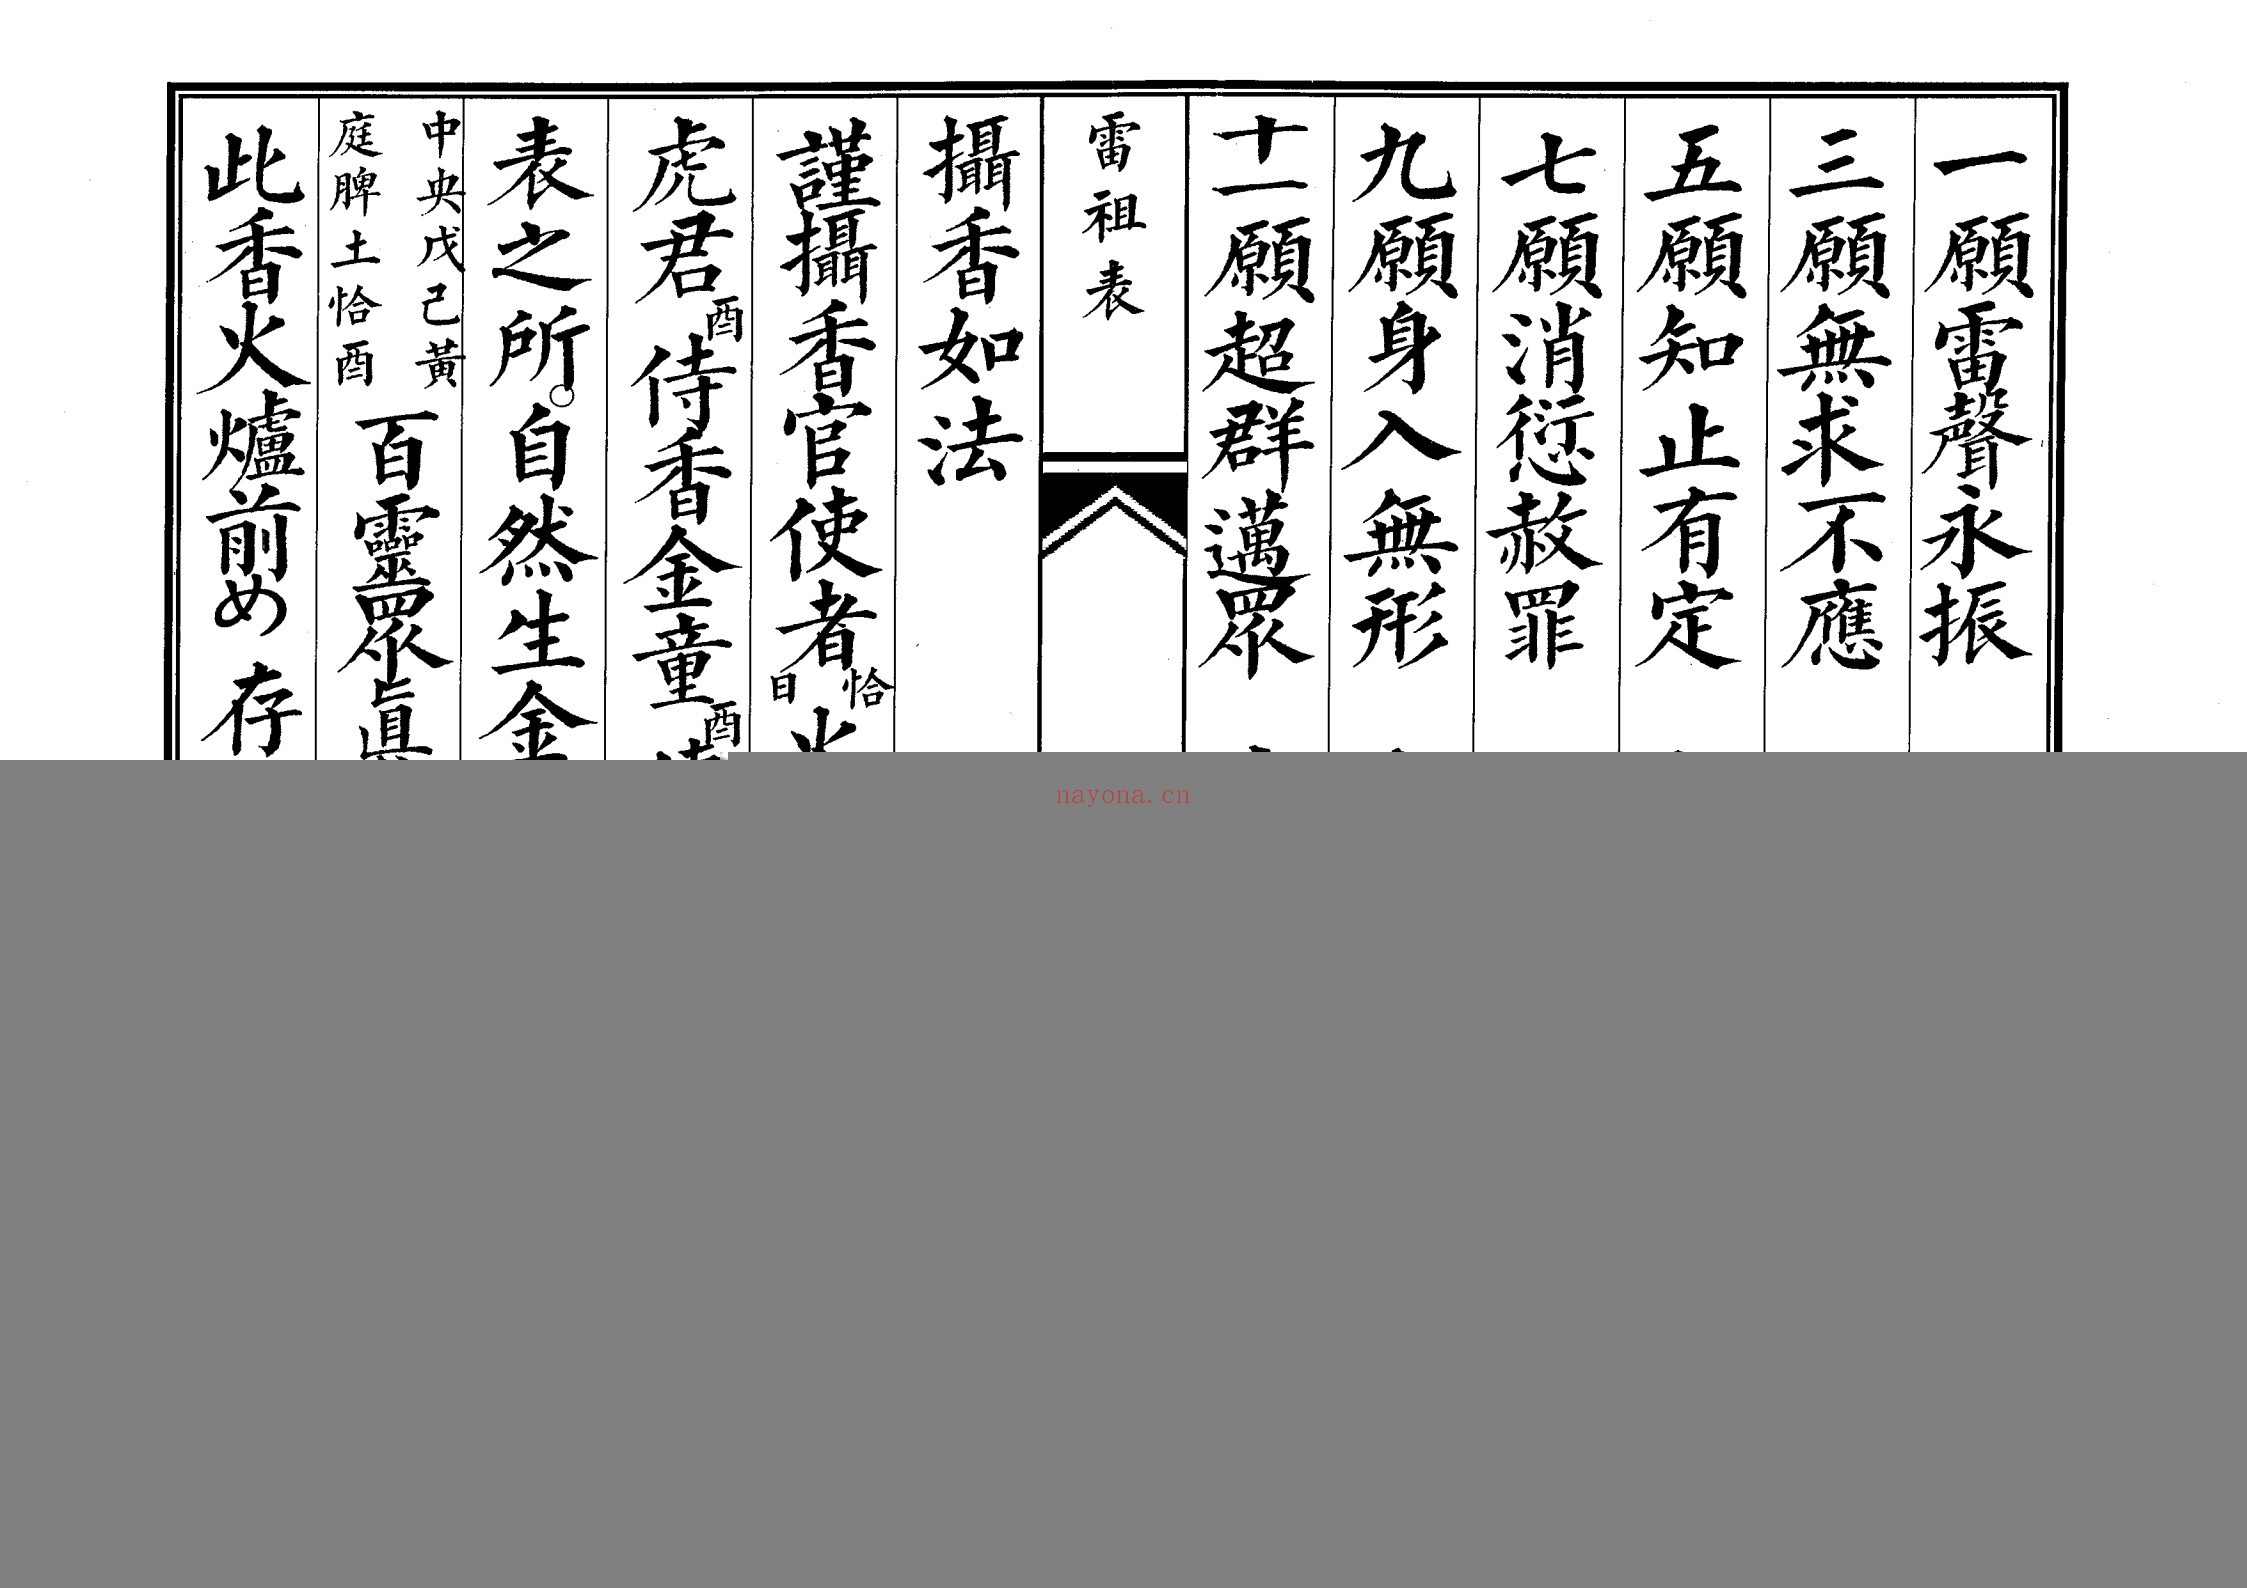 一願雷聲永振
三願無求不應
五願知止有定
七願消愆赦罪
九願身入無形
十一願超群邁眾
雷祖表
攝香如法
謹攝香官使者恰日
虎君酉侍香金童酉
表之所。自然生金
中央戊己黃庭脾土恰酉百靈眾眞
此香火爐前め 存
nayona.cn